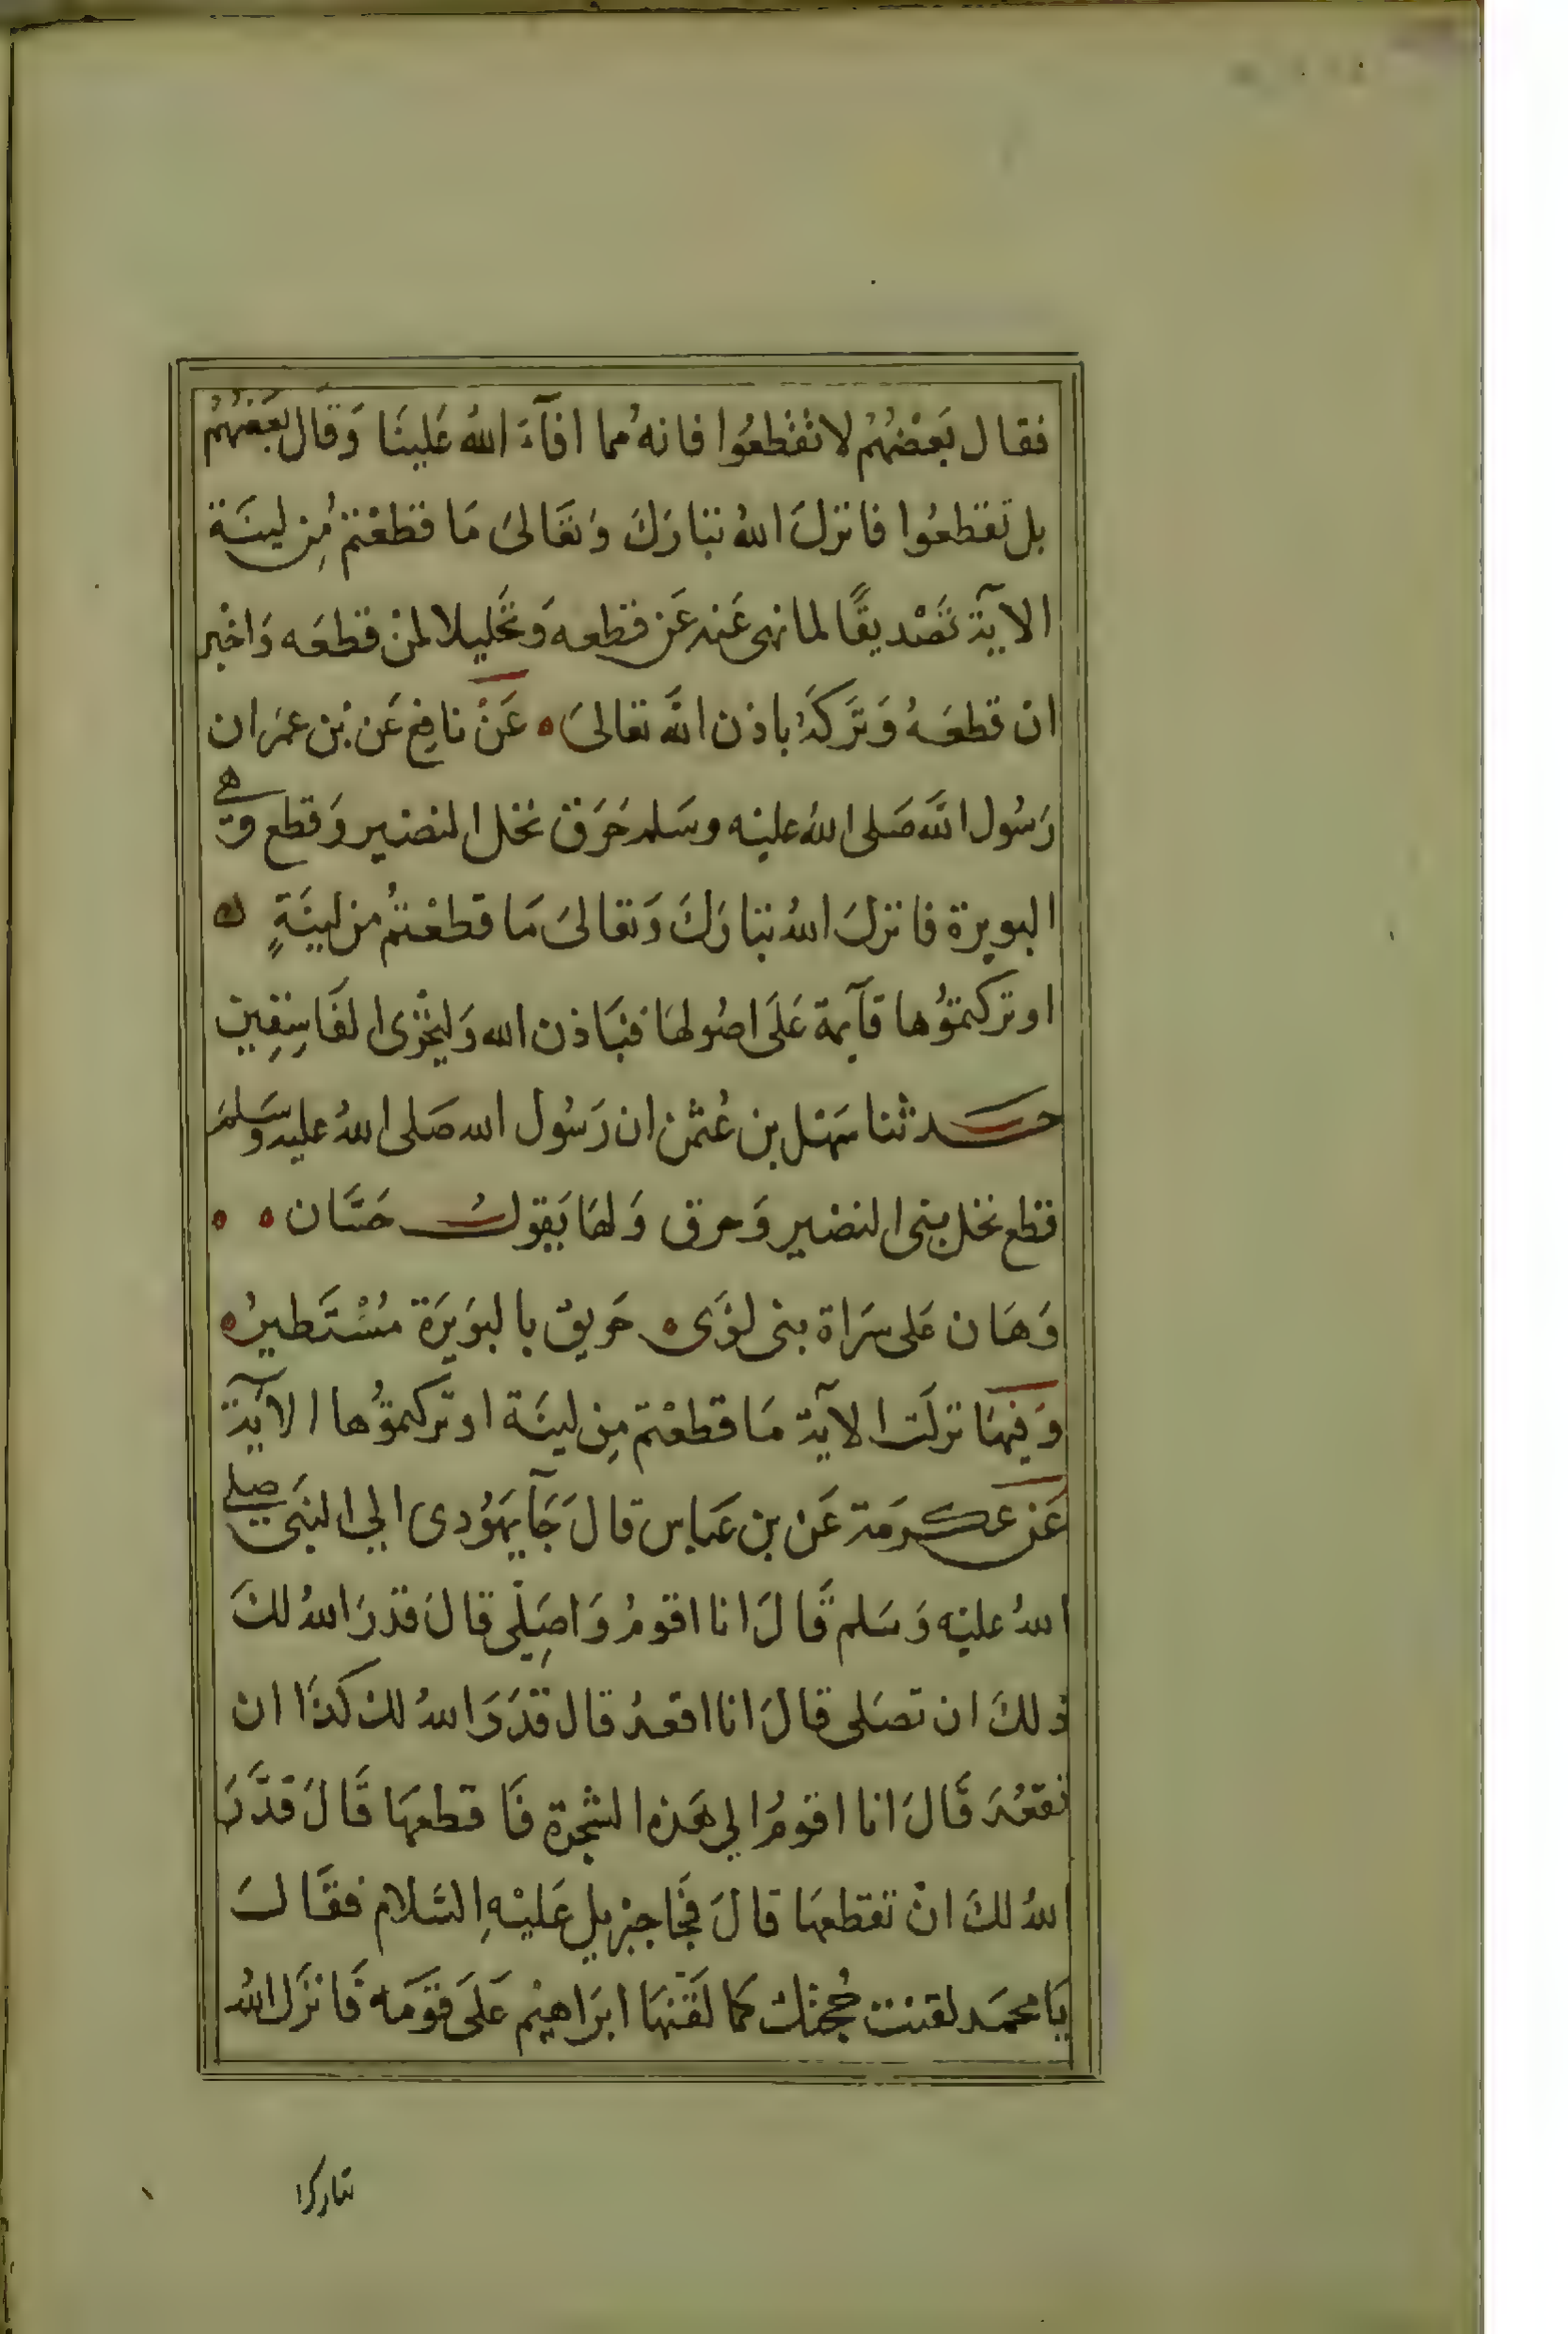 فقال بَعضهُم لا تقطعُوا فانهُ مما افآءَ اللهُ عَلينَا وَقَال بَعَضهُمُ
بل تَقطعُوا فانزلَ اللهُ تبارَكَ وَتعَالىَ مَا قطعْتمُ مِن لينَة
الايَة تَصْديقًا لما نهى عَنه عَن قطعه وَتحَليلا لمنْ قطعَه وَاخْبر
ان قطعَهُ وَتَركهُ باذن اللَّه تعالىَ ه عَنْ نافِع عَن بن عمَر ان
رَسُول اللَّه صَلى اللهُ عليْه وسَلم حَرَق نخل النضير وَقطع وَهي
البويرة فانزلَ اللهُ تبارَكَ وَتعالىَ مَا قطعْتُم من لينَةٍ ه
او تركتموُها قآيمة عَلَى اصُولهَا فبَاذن الله وَليخْزى الفَاسِقِين
حدثنا سَهل بن عُثمن ان رَسُول الله صَلى اللهُ عليه وسَلم
قطع نخل بنى النضير وَحرق وَلهَا يَقولُ حَسَّان ه ه
وَهَان عَلى سَرَاة بنى لؤَى ه حَريق بالبوَيرَة مُسْتَطيرُ ه
وَفيهَا نزلَت الايَة مَا قطعْتم مِن لينَة او تركتموُها الايَة
عَن عكرمَة عَن بن عَباس قالَ جَآ يَهوُدى الي النبَى صلى
اللهُ عليْه وَسَلم قَالَ انا اقومُ وَاصِلّى قالَ قدرَ اللهُ لكَ
ذلكَ ان تصَلى قالَ انا اقعدُ قال قدَرَ اللهُ لك كذَا ان
تقعُدَ قَالَ انا اقومُ الي هَذه الشجَرة فَاقطعهَا قَالَ قدَّرَ
اللهُ لكَ انْ تقطعهَا قالَ فجَا جبْريل عَليْهِ السَلام فقَالَ
يَا محمَد لقنت حُجتك كما لقَنهَا ابرَاهيْم عَلَى قوَمَه فَانزَل اللهُ
تبارك